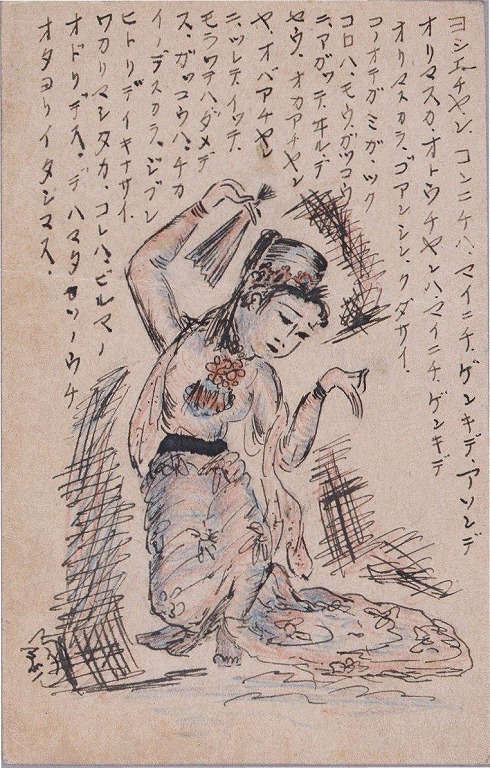 ヨシエチヤン、コンニチハ、マイニチ、ゲンキデ、アソンデ
オリマスカ、オトウチヤンハ、マイニチ、ゲンキデ
オリマスカラ、ゴアンシン、クダサイ、
コノオテガミガ、ツク
コロハ、モウ、ガツコウ
ニ、アガツテ、ヰルデ
セウ、オカアチヤン
ヤ、オバアチヤン
ニ、ツレテ、イツテ、
モラツテハ、ダメデ
ス、ガツコウハ、チカ
イノデスカラ、ジブン
ヒトリデ、イキナサイ、
ワカリマシタカ、コレハ、ビルマノ
オドリデス、デハマタ、ソノウチ
オタヨリイタシマス、